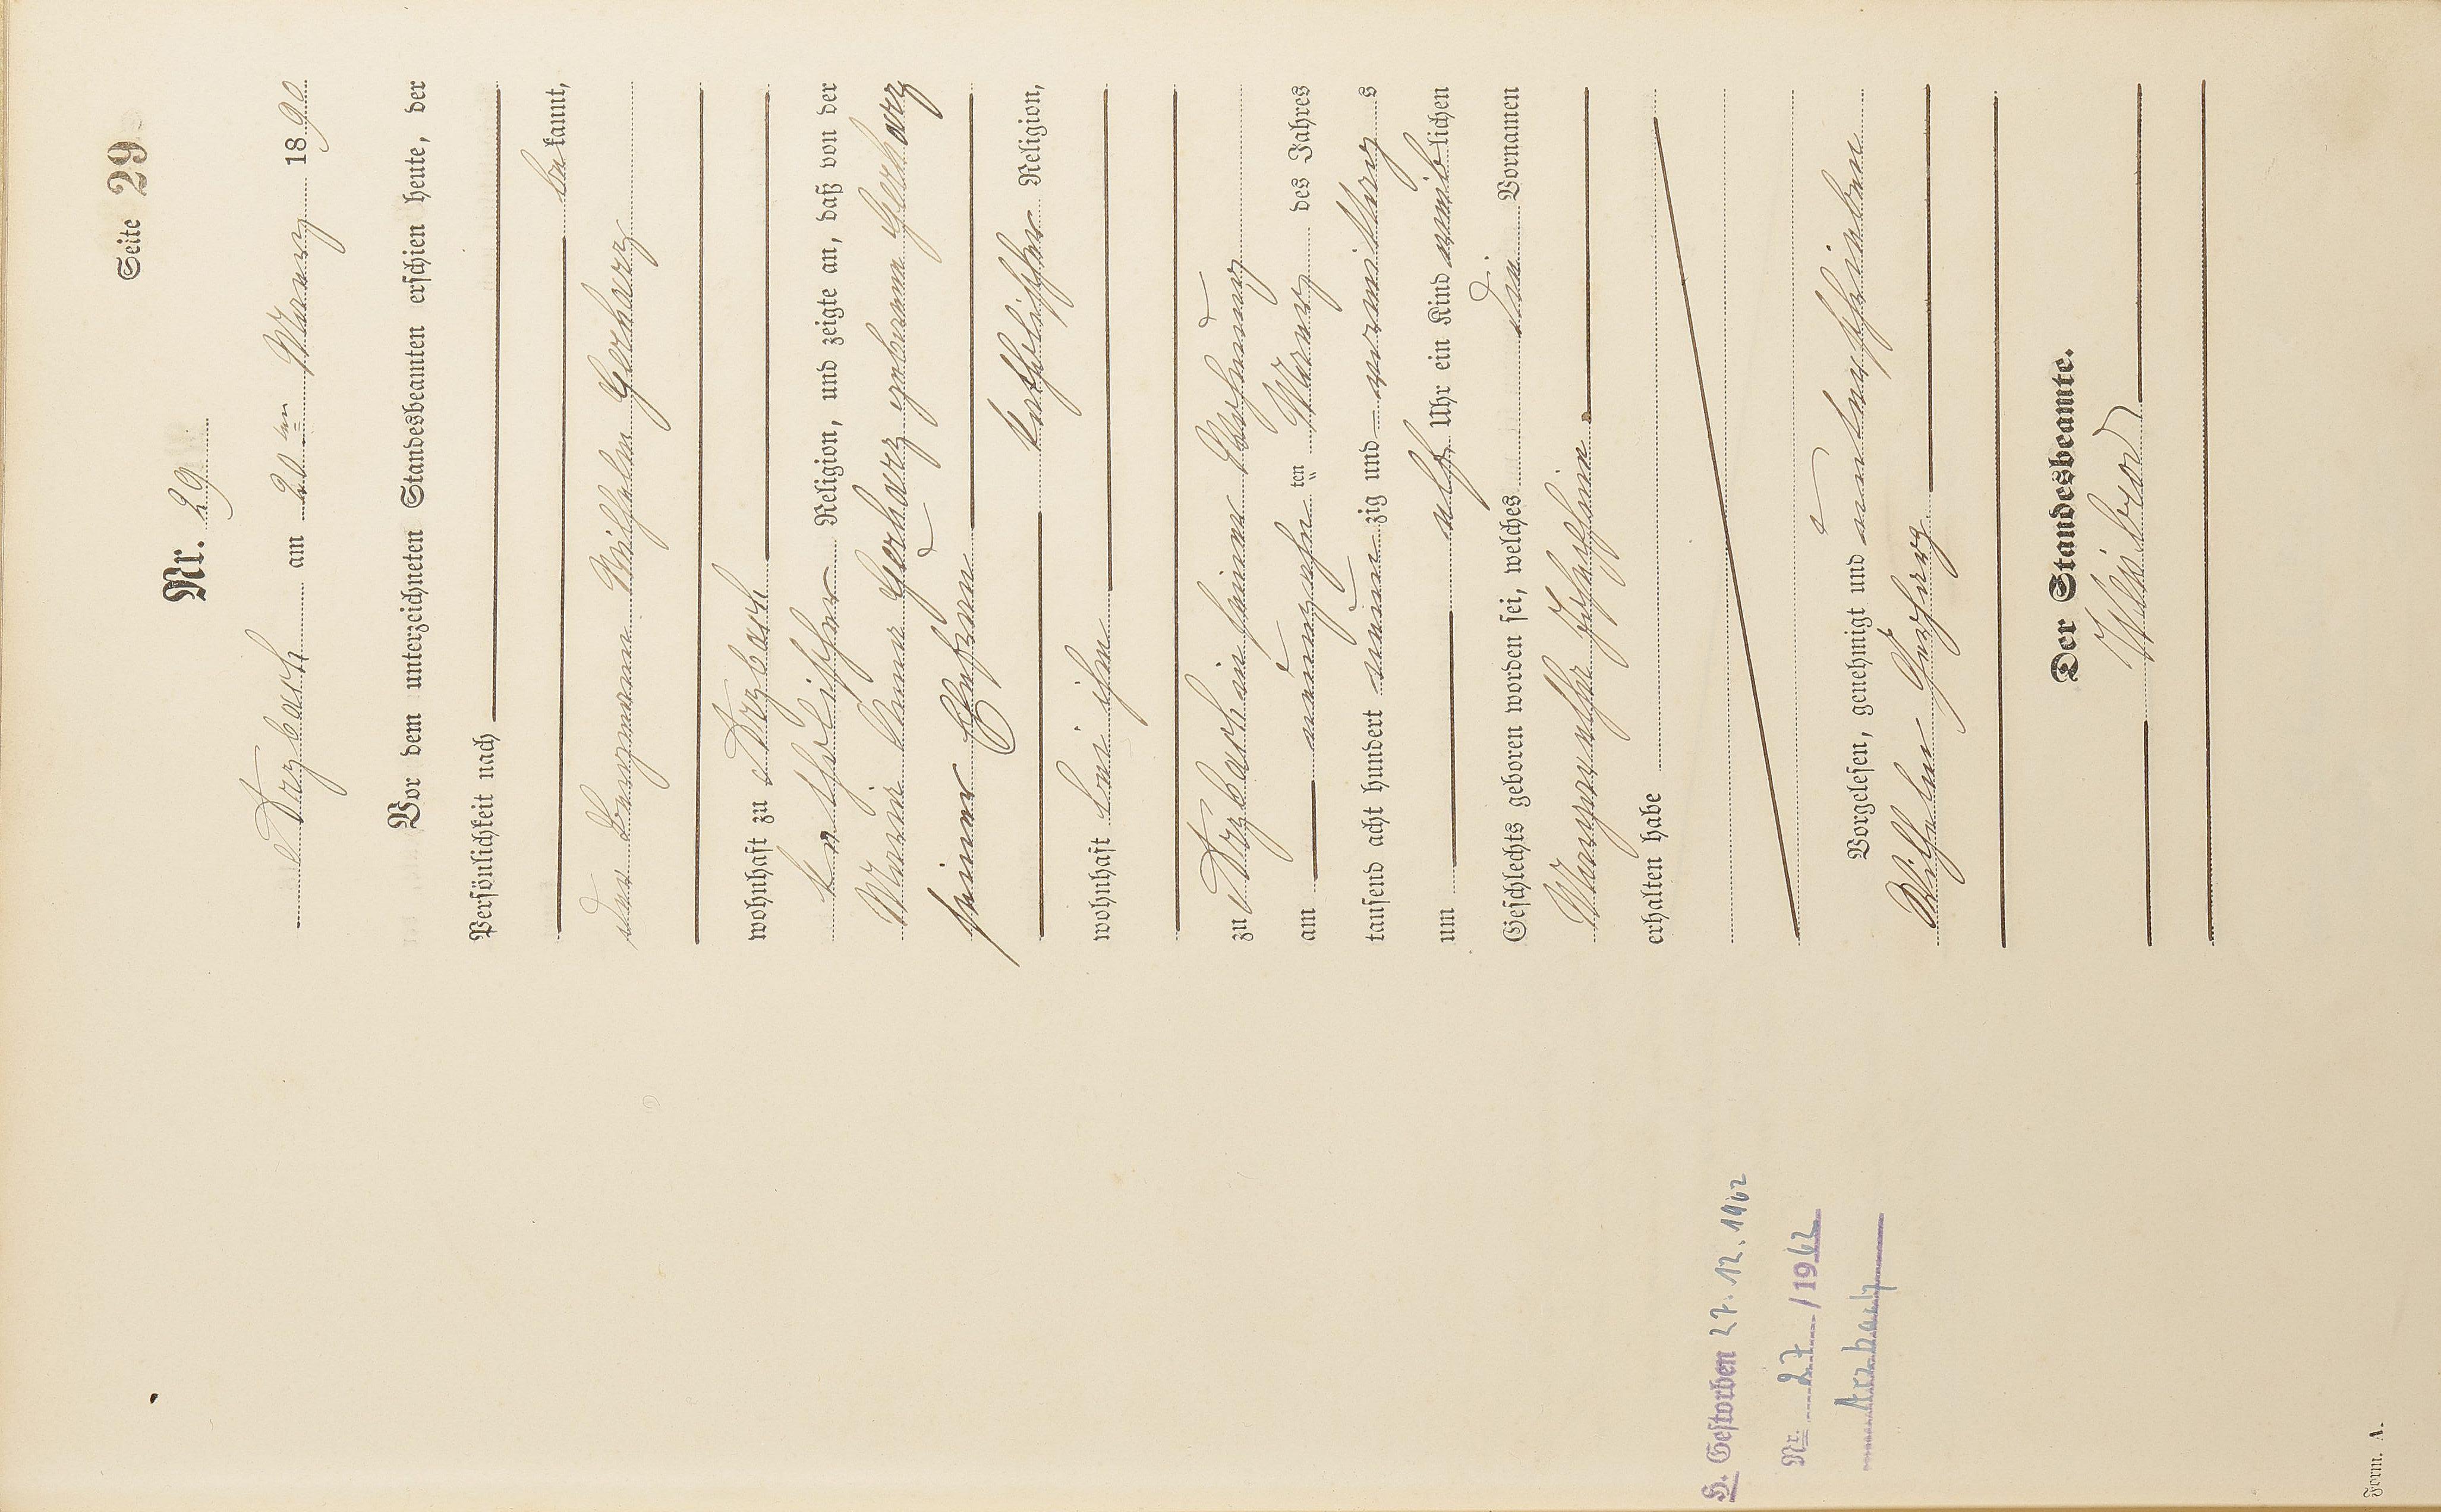 Seite 29
Nr. 29
Arzbach am 20ten Maerz 1890
Vor dem unterzeichneten Standesbeamten erschien heute, der
Persönlichkeit nach
be kannt,
der Bergmann Wilhelm Gerharz
wohnhaft zu Arzbach
katholischer Religion, und zeigte an, daß von der
Maria Anna Gerharz geborenen Gerharz
seiner Ehefrau
katholischer Religion,
wohnhaft bei ihm
zu Arzbach in seiner Wohnung
am neunzehn ten Maerz des Jahres
tausend acht hundert neun zig und vormittags
um elf Uhr ein Kind weiblichen
Geschlechts geboren worden sei, welches den Vornamen
Margarethe
erhalten habe
Vorgelesen, genehmigt und unterschrieben
Wilhelm Gerharz
Der Standesbeamte.
H. Gestorben 27.12.1962
Nr. 27/1962
Arzbach
Form. A.